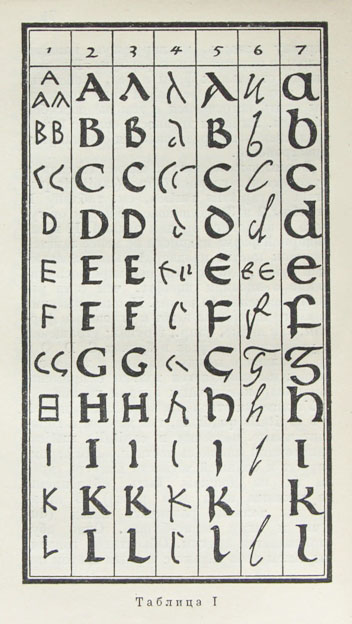 1 2 3 4 5 6 7
A
A A A A A A A u a
B B B B B b b
C C C C C C C C C c
D D D D d d
E E E E e e e
F F F F f
C G G G G
H H H h h h h
I I I I I I I
K K K K K k
L L L L L l l
Таблица I